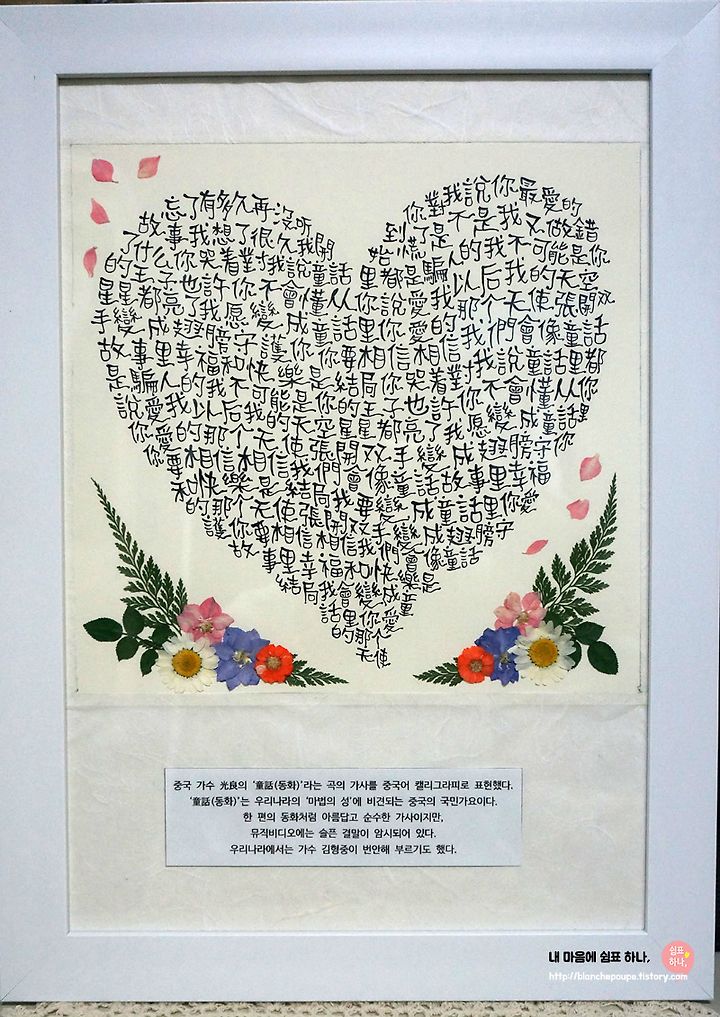 忘了有多久再沒听
到你對我說你最愛的
故事我想了很久我開
始慌了是不是我又做錯
了什么你哭着對我說童話
里都是騙人的我不可能是你
的王子也許你不會懂从
你說愛我以后我的天空
星星都亮了我愿變成童話
里你愛的那个天使張開双
手變成翅膀守護你
你要相信相信我們會像童話
故事里幸福和快樂是結局
你哭着對我說童話里都
是騙人的我不可能是你的王子也許你不會懂从你
說愛我以后我的天空星星都亮了我愿變成童話里
你愛的那个天使張開双手變成翅膀守護你
你要相信相信我們會像童話故事里幸福
和快樂是結局我要變成童話里你愛
的那个天使張開双手變成翅膀守
護你你要相信相信我們會像童話
故事里幸福和快樂是
結局我會變成童
話里你愛
的那个
天使
중국 가수 光良의 '童話(동화)'라는 곡의 가사를 중국어 캘리그라피로 표현했다.
'童話(동화)'는 우리나라의 '마법의 성'에 비견되는 중국의 국민가요이다.
한 편의 동화처럼 아름답고 순수한 가사이지만,
뮤직비디오에는 슬픈 결말이 암시되어 있다.
우리나라에서는 가수 김형중이 번안해 부르기도 했다.
내 마음에 쉼표 하나,
쉼표
하나,
http://blanchepoupe.tistory.com